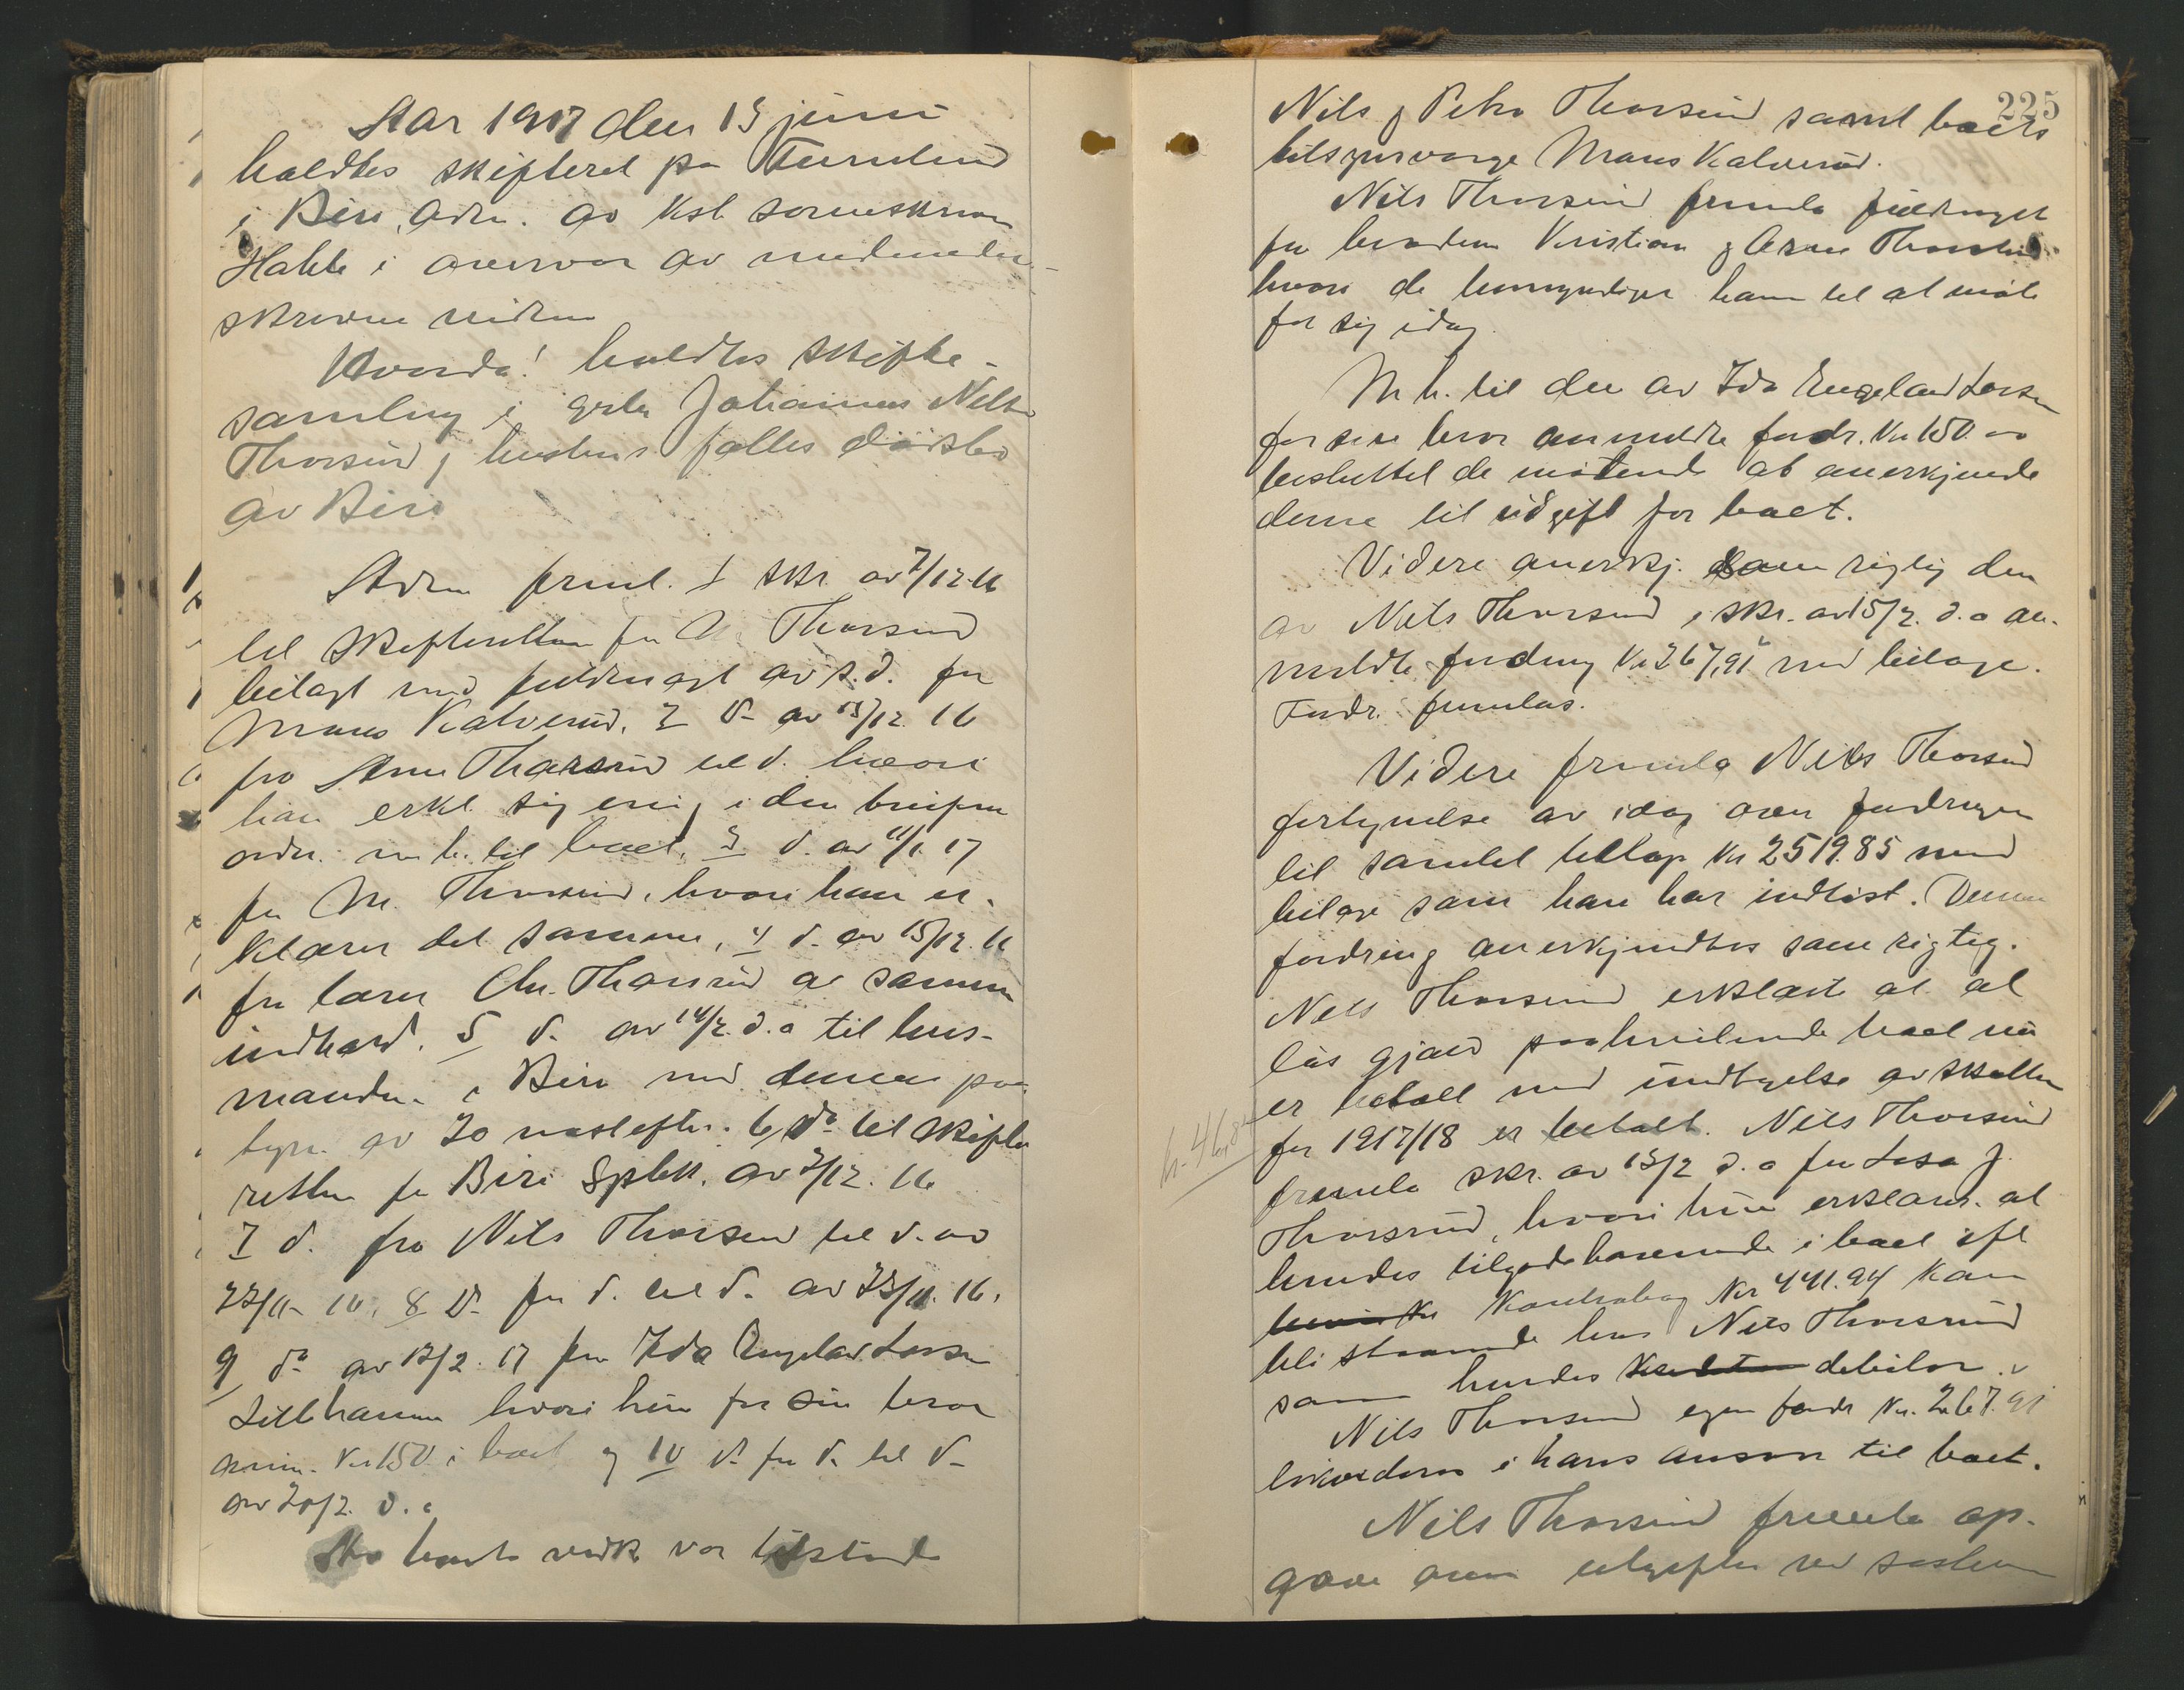 Aar 1917 den 15 juni
holdtes skifteret på
i Biri, adm. av kst. sorenskriver
i overvær av medunder-
skrevne vidner
Hvorda! holdtes skifte-
samling i Johannes Nilsen
Thorsrud & hustrus fælles dødsbo
av Biri
Adm freml. 1 skr. av 7/12-16
til skifteretten fra Thorsrud
bilagt med fuldmagt av s.d. fra
Maus Kalverud. 2 d- av 15/12 16
fra Thorsrud til d. hvori
han erkl. sig enig i den
ordn. m.h. til boet, 3 d. av 11/1 17
fra M. Thorsrud, hvori han er-
klærer det samme, 4 d- av 15/12. 16
fra lærer Chr. Thorsrud av samme
indhold. 5 d. av 14/2. d.a til lens-
manden i Biri med dennes paa-
tegn. av 20 næstefter. 6 do til skifte
retten fra Biri Spbk. av 7/12. 16
7 d. fra Nils Thorsrud til d. av
22/11- 16. 8 d- fra d. til d. av 23/11. 16.
9 do av 12/2. 17 fra Ida Engeland Larsen
Lillehammer hvori hun for sin bror
anm. Kr 150 i boet og 10 d. fra d. til d-
av 20/2. d.a
Av boets vedk var tilstede
225
Nils & Petra Thorsrud samt boets
tilsynsverge Maus Kalverud.
Nils Thorsrud fremla fuldmagt
fra brødrene Kristian & Arne Thorsrud
hvori de bemyndiger ham til at møte
for sig idag.
M h. til den av Ida Engeland Larsen
for sin bror anmeldte fordr. Kr 150.00
besluttet de møtende at anerkjende
denne til udgift for boet.
Videre anerkj. som rigtig den
av Nils Thorsrud i skr. av 15/2. d.a an-
meldte fordring Kr 267,91 med bilage.
Fordr. fremlas.
Videre fremla Nils Thorsrud
fortegnelse av idag over fordringer
til samlet belløp Kr 2519.85 med
bilage som han har indløst. Denne
fordring anerkjendtes som rigtig.
Nils Thorsrud erklærte at al
løs gjæld paahvilende boet nu
er betalt med undtagelse av skatten
for 1917/18 er betalt. Nils Thorsrud
fremla skr. av 15/2 d.a fra Lisa J.
Thorsrud, hvori hun erklærer at
hendes tilgodehavende i boet ifl
Kontrabog Kr 441.94 kan
bli staaende hos Nils Thorsrud
som hendes debitor.
Nils Thorsrud egen fordr Kr. 267.91
likvideres i hans ansvar til boet.
Nils Thorsrud fremla op-
gave over utgifter ved